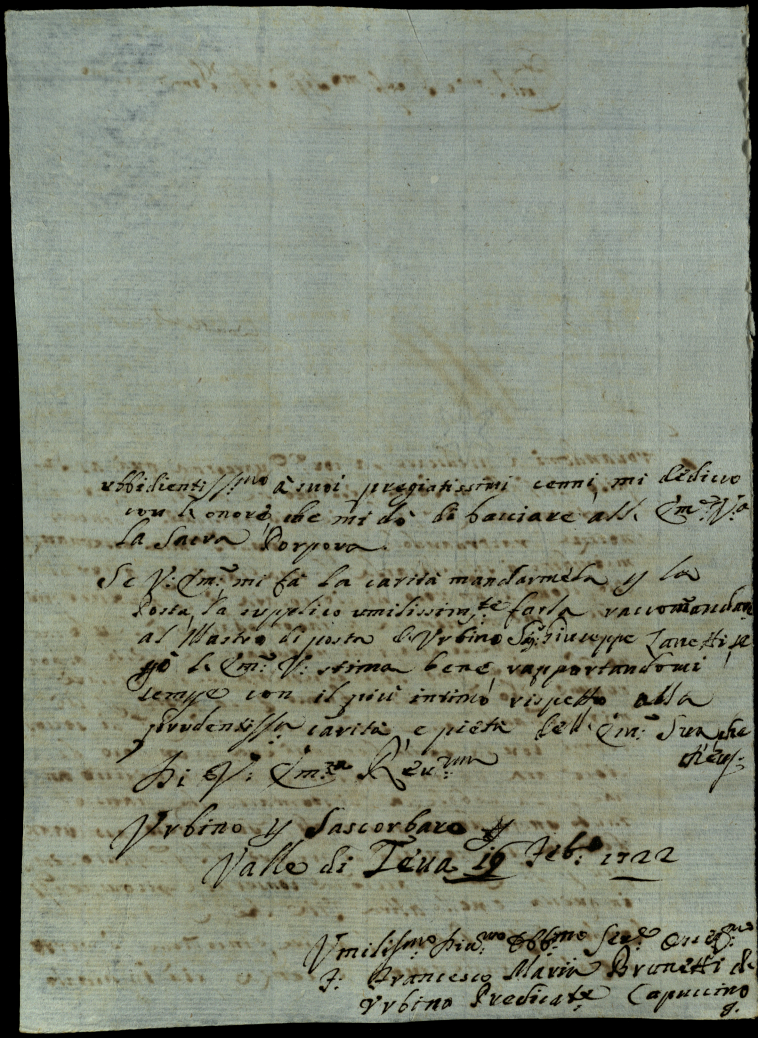 ubbidientiss.mo à suoi pregiatissimi cenni mi dedico
con l'onore, che mi dò di bacciare all' Em.a V.a
la Sacra Porpora.
Se V: Em.a mi fà la carità mandarmela p la
Posta, la supplico umilissim.te farla raccomandar
al Mastro di posta d'Urbino Sig.r Giuseppe Zanetti,
se l'Em.a V: stima bene, rapportandomi
sempre con il più intimo rispetto alla
prudentiss.a carità e pietà dell' Em.a Sua, che
Di V: Em.za Rev.ma
Urbino p Sascorbaro p
Valle di Teva 19 Feb.o 1722
Umiliss.mo Div.mo Obb.mo Ser.e
F. Francesco Maria Brunetti da
Urbino Predicat.e Capuccino